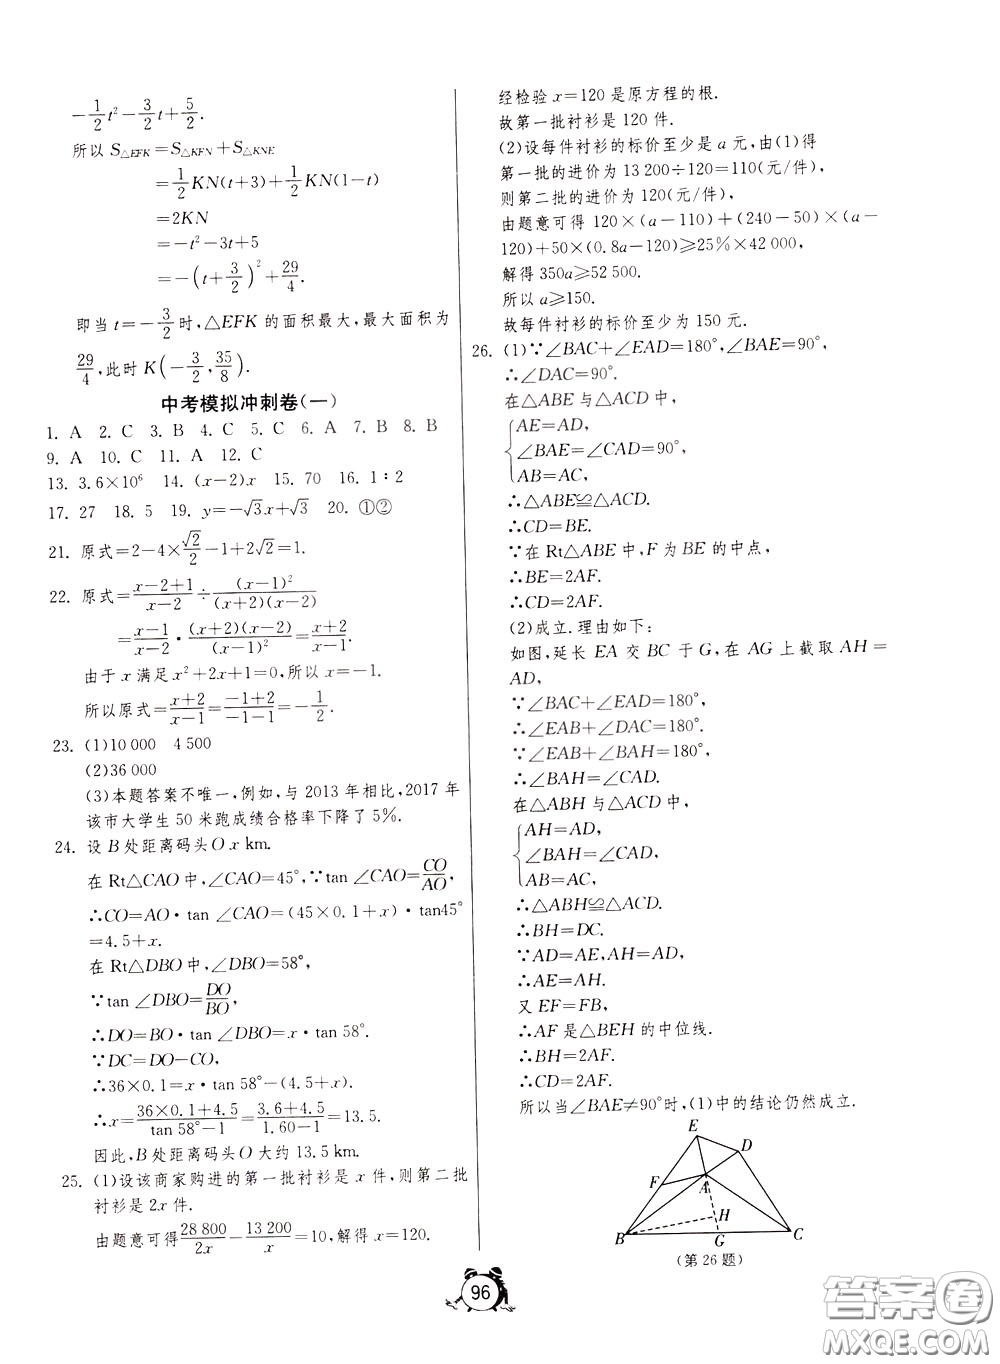 -1/2t²-3/2t+5/2.
所以 S△EFK=S△KFN+S△KNE
=1/2KN(t+3)+1/2KN(1-t)
=2KN
=-t²-3t+5
=-(t+3/2)²+29/4.
即当 t=-3/2时,△EFK 的面积最大,最大面积为
29/4,此时 K(-3/2,35/8).
中考模拟冲刺卷(一)
1. A 2. C 3. B 4. C 5. C 6. A 7. B 8. B
9. A 10. C 11. A 12. C
13. 3.6×10⁶ 14. (x-2)x 15. 70 16. 1∶2
17. 27 18. 5 19. y=-√3x+√3 20. ①②
21. 原式=2-4×√2/2-1+2√2=1.
22. 原式=(x-2+1)/(x-2)÷(x-1)²/((x+2)(x-2))
=(x-1)/(x-2)·(x+2)(x-2)/(x-1)²=(x+2)/(x-1).
由于 x 满足 x²+2x+1=0,所以 x=-1.
所以原式=(x+2)/(x-1)=(-1+2)/(-1-1)=-1/2.
23. (1)10 000 4 500
(2)36 000
(3)本题答案不唯一,例如,与 2013 年相比,2017 年
该市大学生 50 米跑成绩合格率下降了 5%.
24. 设 B 处距离码头 O x km.
在 Rt△CAO 中,∠CAO=45°,∵tan ∠CAO=CO/AO,
∴CO=AO·tan ∠CAO=(45×0.1+x)·tan45°
=4.5+x.
在 Rt△DBO 中,∠DBO=58°,
∵tan ∠DBO=DO/BO,
∴DO=BO·tan ∠DBO=x·tan 58°.
∵DC=DO-CO,
∴36×0.1=x·tan 58°-(4.5+x).
∴x=(36×0.1+4.5)/(tan 58°-1)=(3.6+4.5)/(1.60-1)=13.5.
因此,B 处距离码头 O 大约 13.5 km.
25. (1)设该商家购进的第一批衬衫是 x 件,则第二批
衬衫是 2x 件.
由题意可得28 800/2x-13 200/x=10,解得 x=120.
经检验 x=120 是原方程的根.
故第一批衬衫是 120 件.
(2)设每件衬衫的标价至少是 a 元,由(1)得
第一批的进价为 13 200÷120=110(元/件),
则第二批的进价为 120(元/件),
由题意可得 120×(a-110)+(240-50)×(a-
120)+50×(0.8a-120)≥25%×42 000,
解得 350a≥52 500.
所以 a≥150.
故每件衬衫的标价至少为 150 元.
26. (1)∵∠BAC+∠EAD=180°,∠BAE=90°,
∴∠DAC=90°.
在△ABE 与△ACD 中,
AE=AD,
∠BAE=∠CAD=90°,
AB=AC,
∴△ABE≌△ACD.
∴CD=BE.
∵在 Rt△ABE 中,F 为 BE 的中点,
∴BE=2AF.
∴CD=2AF.
(2)成立.理由如下:
如图,延长 EA 交 BC 于 G,在 AG 上截取 AH=
AD,
∵∠BAC+∠EAD=180°,
∴∠EAB+∠DAC=180°.
∵∠EAB+∠BAH=180°,
∴∠BAH=∠CAD.
在△ABH 与△ACD 中,
AH=AD,
∠BAH=∠CAD,
AB=AC,
∴△ABH≌△ACD.
∴BH=DC.
∵AD=AE,AH=AD,
∴AE=AH.
又 EF=FB,
∴AF 是△BEH 的中位线.
∴BH=2AF.
∴CD=2AF.
所以当∠BAE≠90°时,(1)中的结论仍然成立.
E
D
F
A
H
B
G
C
(第 26 题)
96
答案圈
MXQE.COM